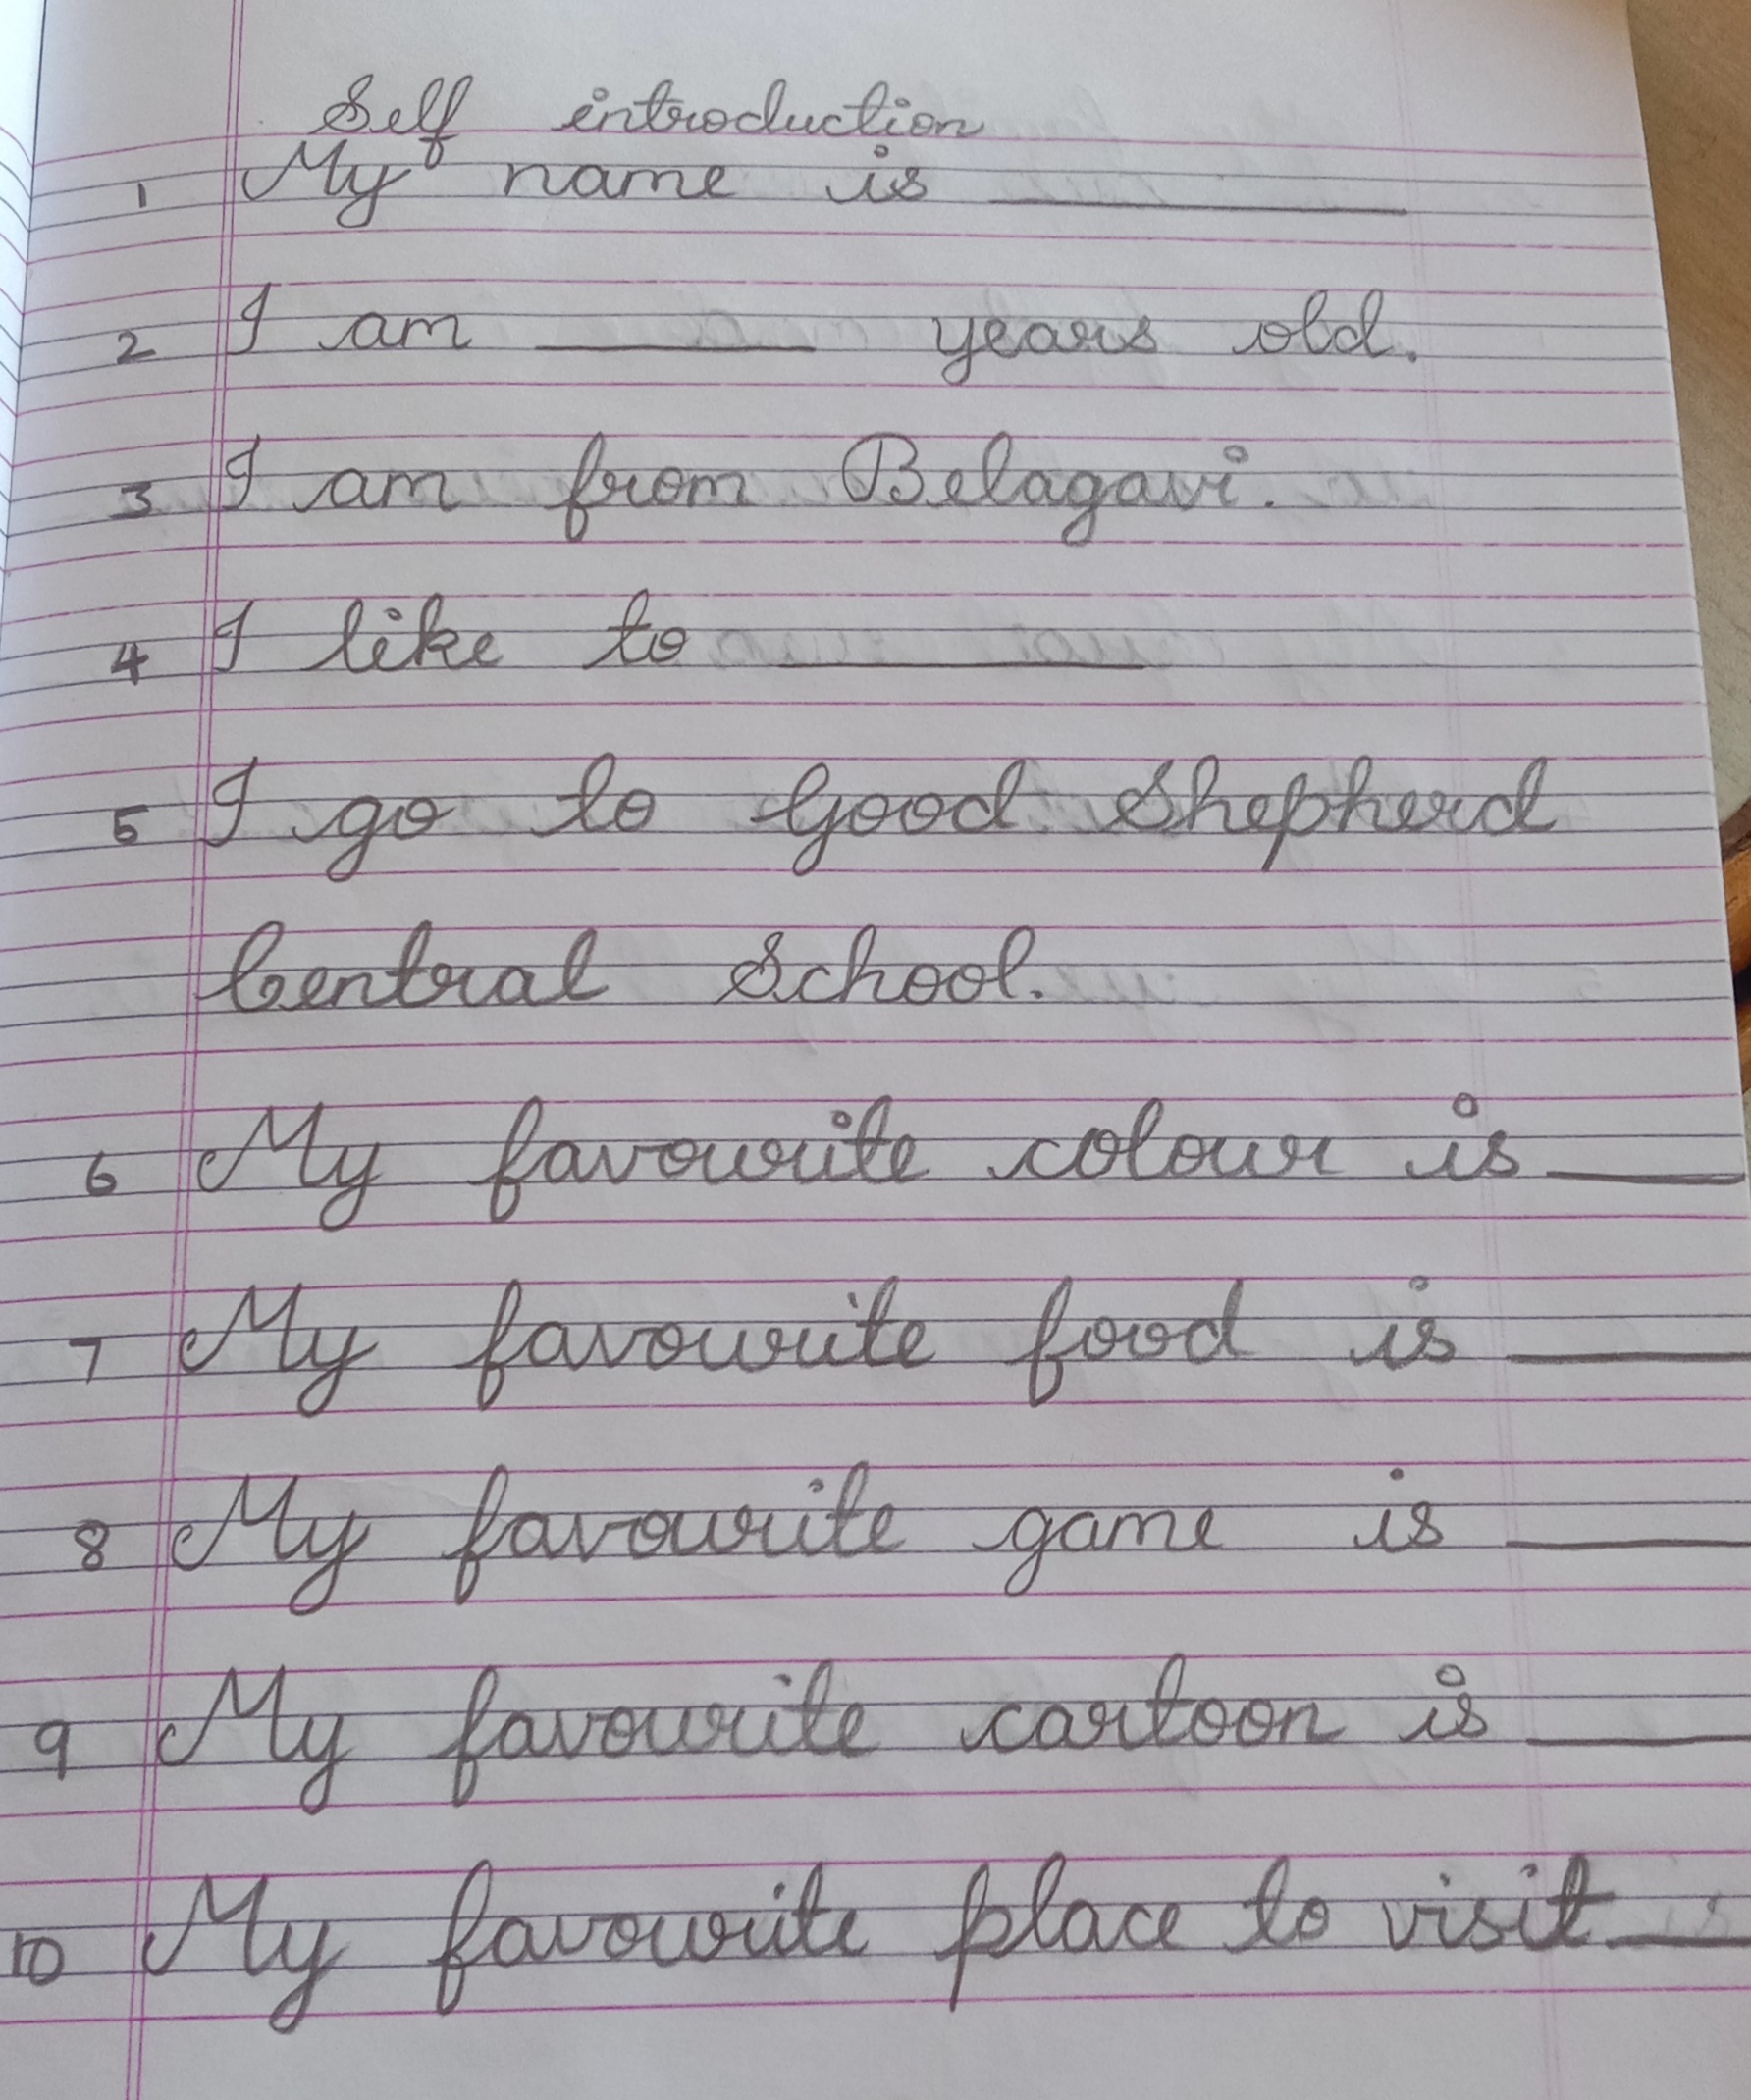 Self introduction
1 My name is ________
2 I am ________ years old.
3 I am from Belagavi.
4 I like to ________
5 I go to Good Shepherd
Central School.
6 My favourite colour is ____
7 My favourite food is ____
8 My favourite game is ____
9 My favourite cartoon is ____
10 My favourite place to visit ____